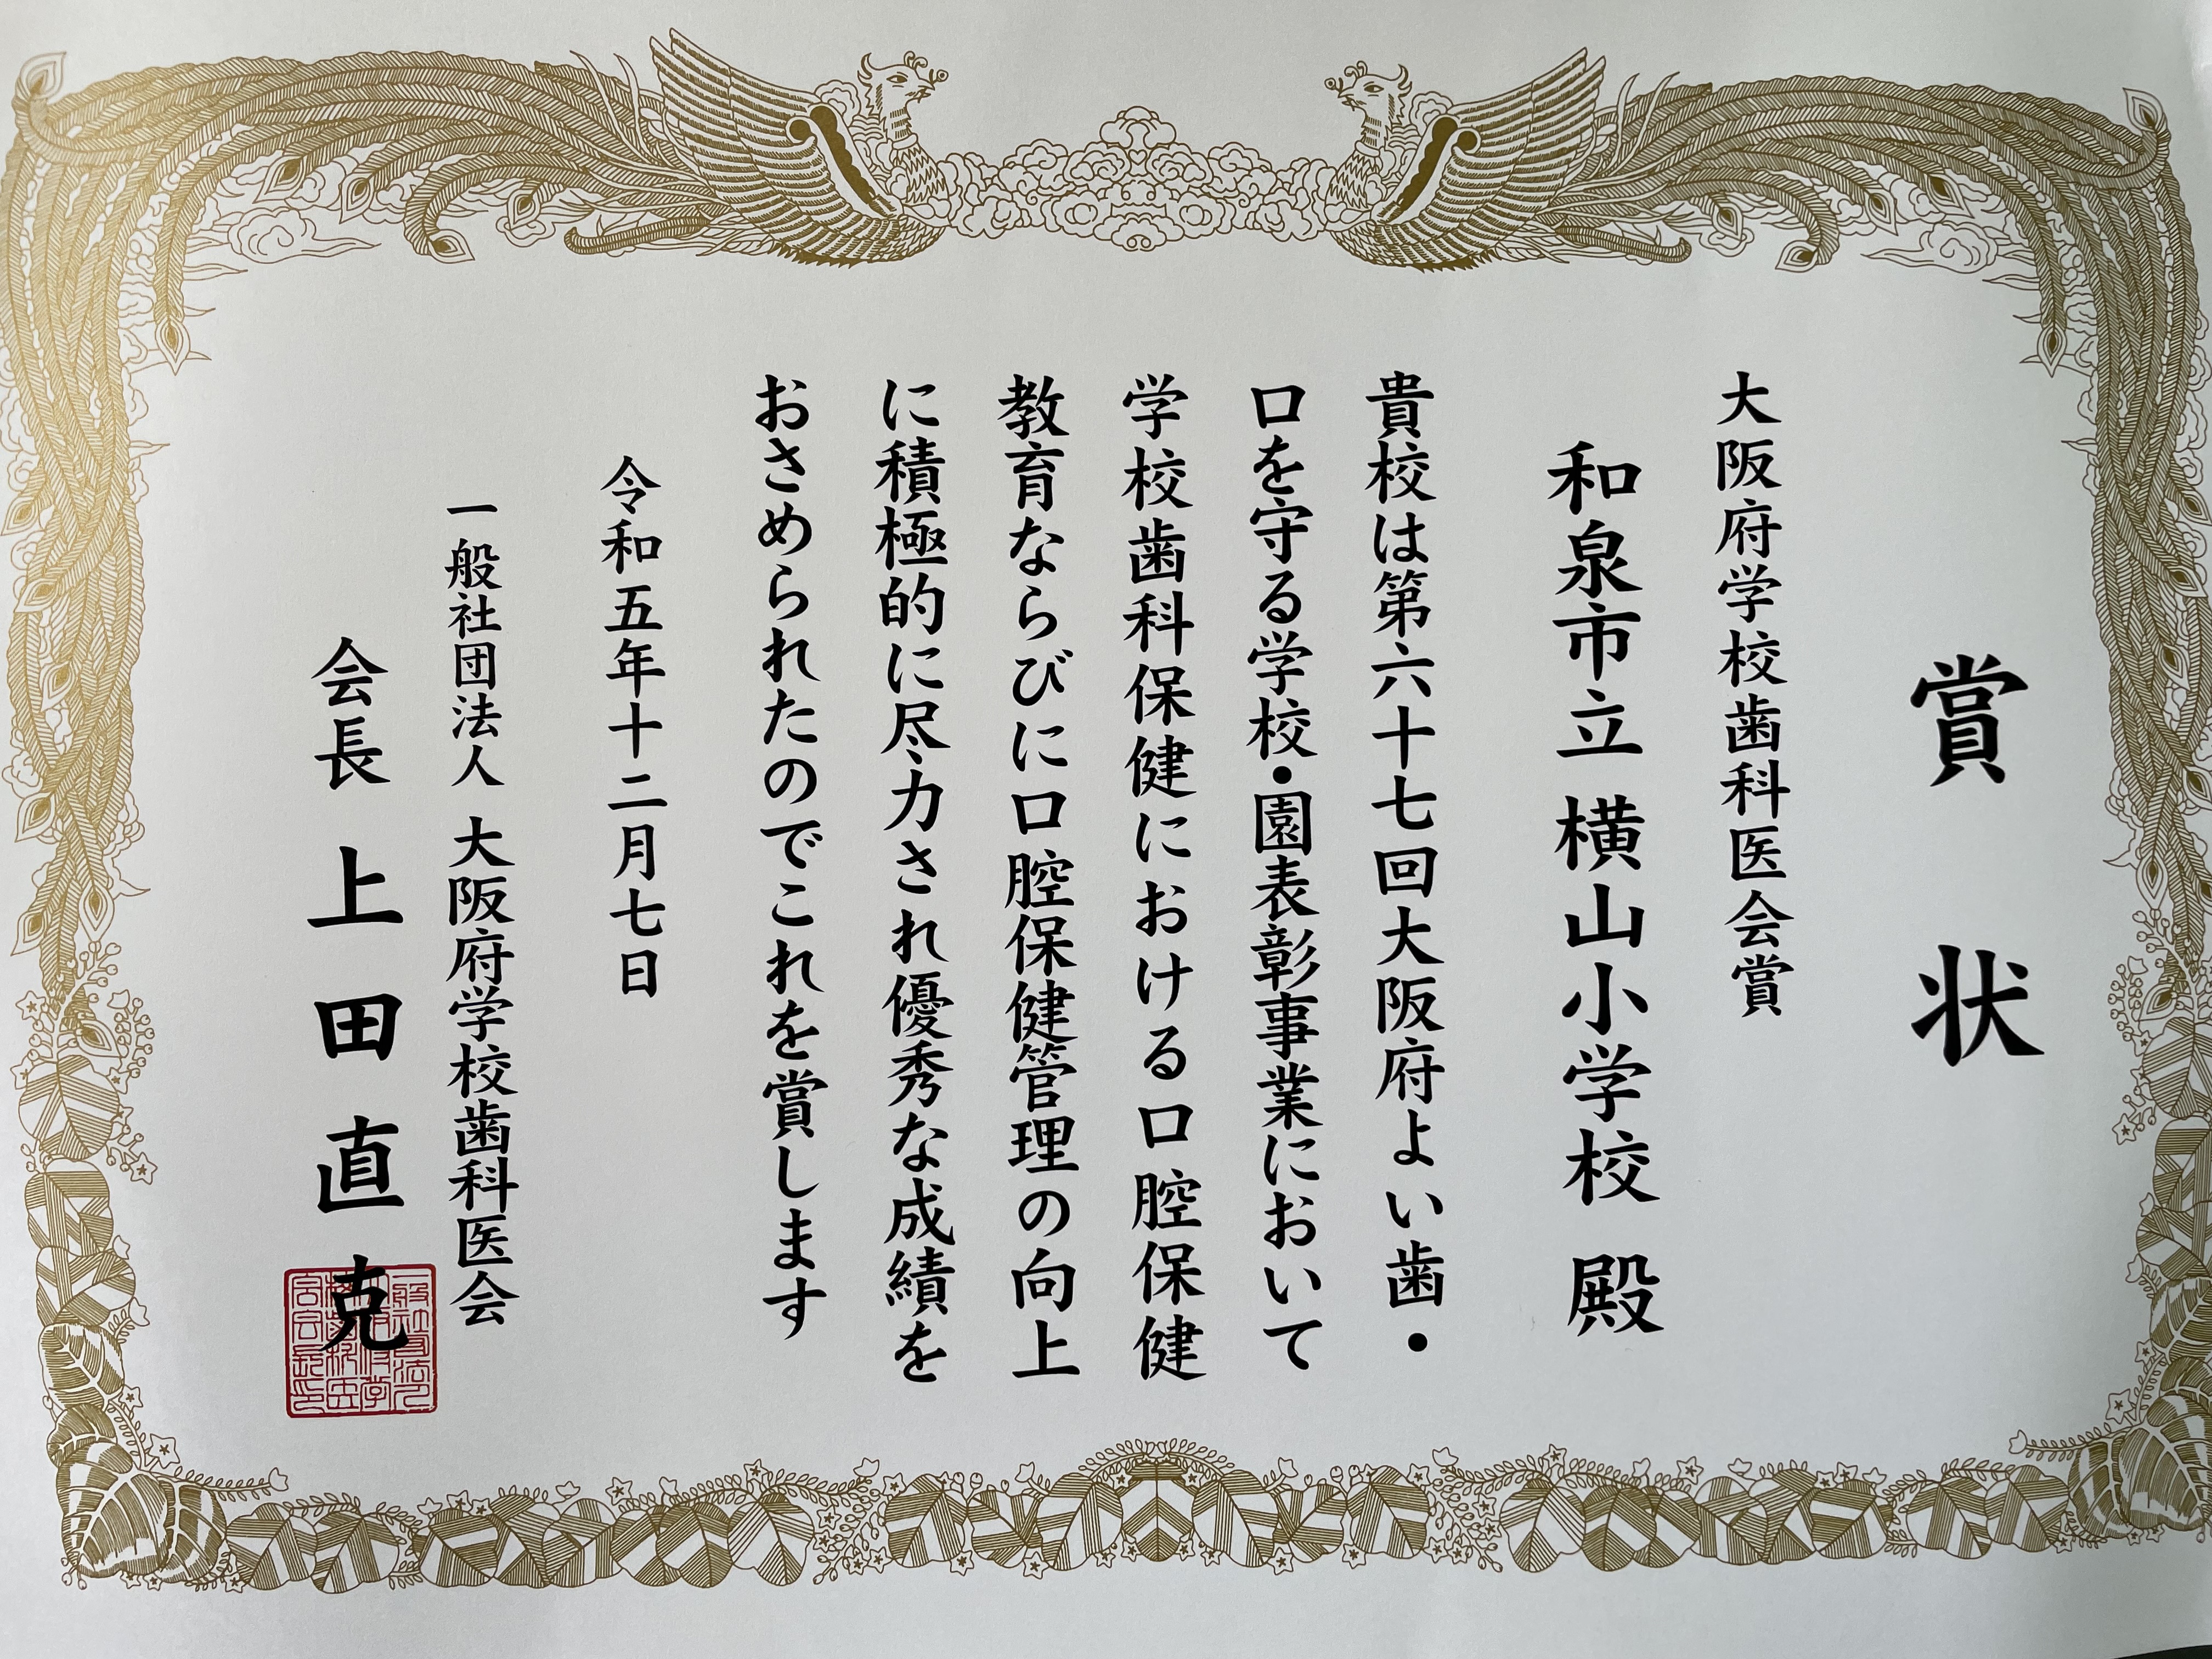 賞状
大阪府学校歯科医会賞
和泉市立 横山小学校 殿
貴校は第六十七回大阪府よい歯・
口を守る学校・園表彰事業において
学校歯科保健における口腔保健
教育ならびに口腔保健管理の向上
に積極的に尽力され優秀な成績を
おさめられたのでこれを賞します
令和五年十二月七日
一般社団法人 大阪府学校歯科医会
会長 上田直克